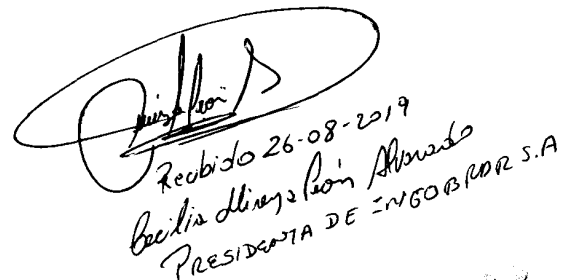 Recibido 26-08-2019
Cecilia Mireya León Alvarado
PRESIDENTA DE INGOBRAR S.A